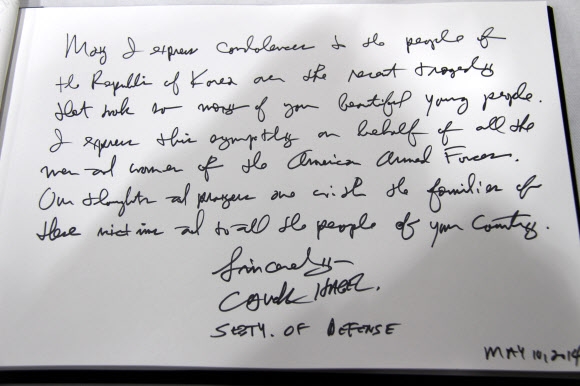 May I express condolences to the people of
the Republic of Korea over the recent tragedy
that took so many of your beautiful young people.
I express this sympathy on behalf of all the
men and women of the American Armed Forces.
Our thoughts and prayers are with the families of
these victims and to all the people of your Country.
Sincerely
Chuck HAGEL.
SECTY. OF DEFENSE
MAY 10, 2014